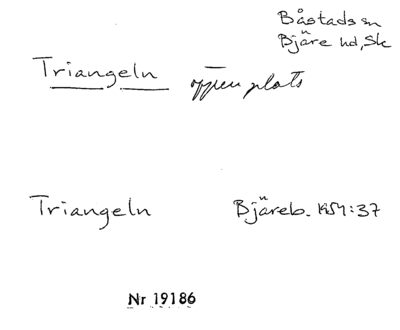 Båstads sn
Bjäre hd, Sk
Triangeln öppen plats
Triangeln Bjäreb. 1954:37
Nr 19186